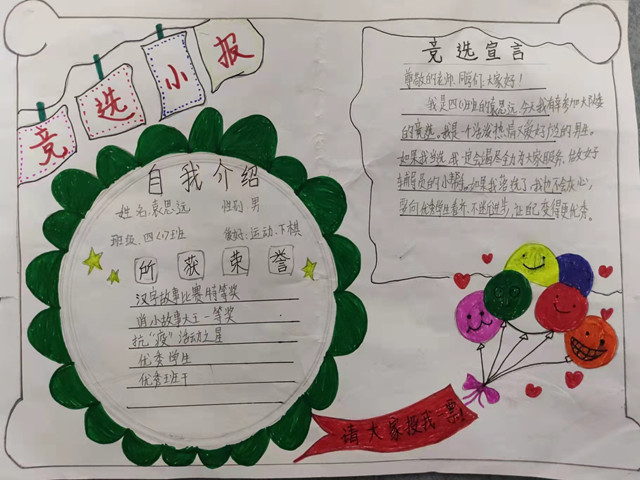 竞选小报
自我介绍
姓名:袁思远 性别:男
班级:四(1)班 爱好:运动、下棋
所获荣誉
汉字故事比赛特等奖
故事大王一等奖
抗“疫”活动之星
优秀学生
优秀班干
竞选宣言
尊敬的老师、同学们:大家好!
我是四(1)班的袁思远,今天我有幸参加大队委
的竞选。我是一个活泼热情,兴趣广泛的男生。
如果我当选,我一定会竭尽全力为大家服务,
辅导员的小助手。如果我落选了,我也不会灰心,
向优秀学生看齐,不断进步,让自己变得更优秀。
请大家投我一票